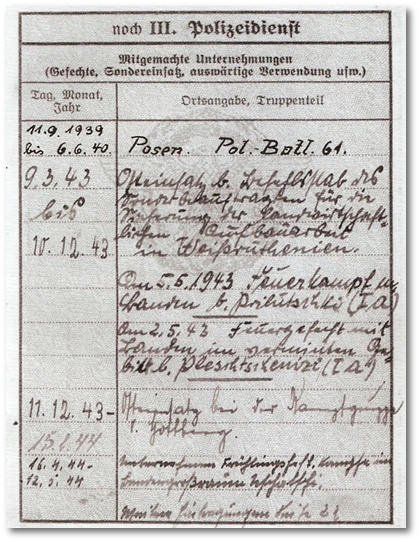 noch III. Polizeidienst
Mitgemachte Unternehmungen
(Gefechte, Sondereinsatz, auswärtige Verwendung usw.)
Tag, Monat, Jahr
Ortsangabe, Truppenteil
11.9.1939
bis 6.6.40.
Posen. Pol.-Batl. 61.
9.3.43
bis
10.12.43
Osteinsatz b. Befehlsstab des
Sonderbeauftragten für die
Sicherung der landwirtschaft-
lichen Aufbauarbeit
in Weißruthenien.
Am 5.6.1943 Feuerkampf m.
Banden b. Prilutschki (I a)
Am 2.5.43 Feuergefecht mit
Banden im verminten Ge-
biet b. Pleschtschenizi (I a)
11.12.43-
15.1.44
Osteinsatz bei der Kampfgruppe
v. Gottberg.
16.4.44-
12.5.44
Unternehmen Frühlingsfest. Kämpfe im
Bandengroßraum Uschatschi.
Weitere Eintragungen Seite